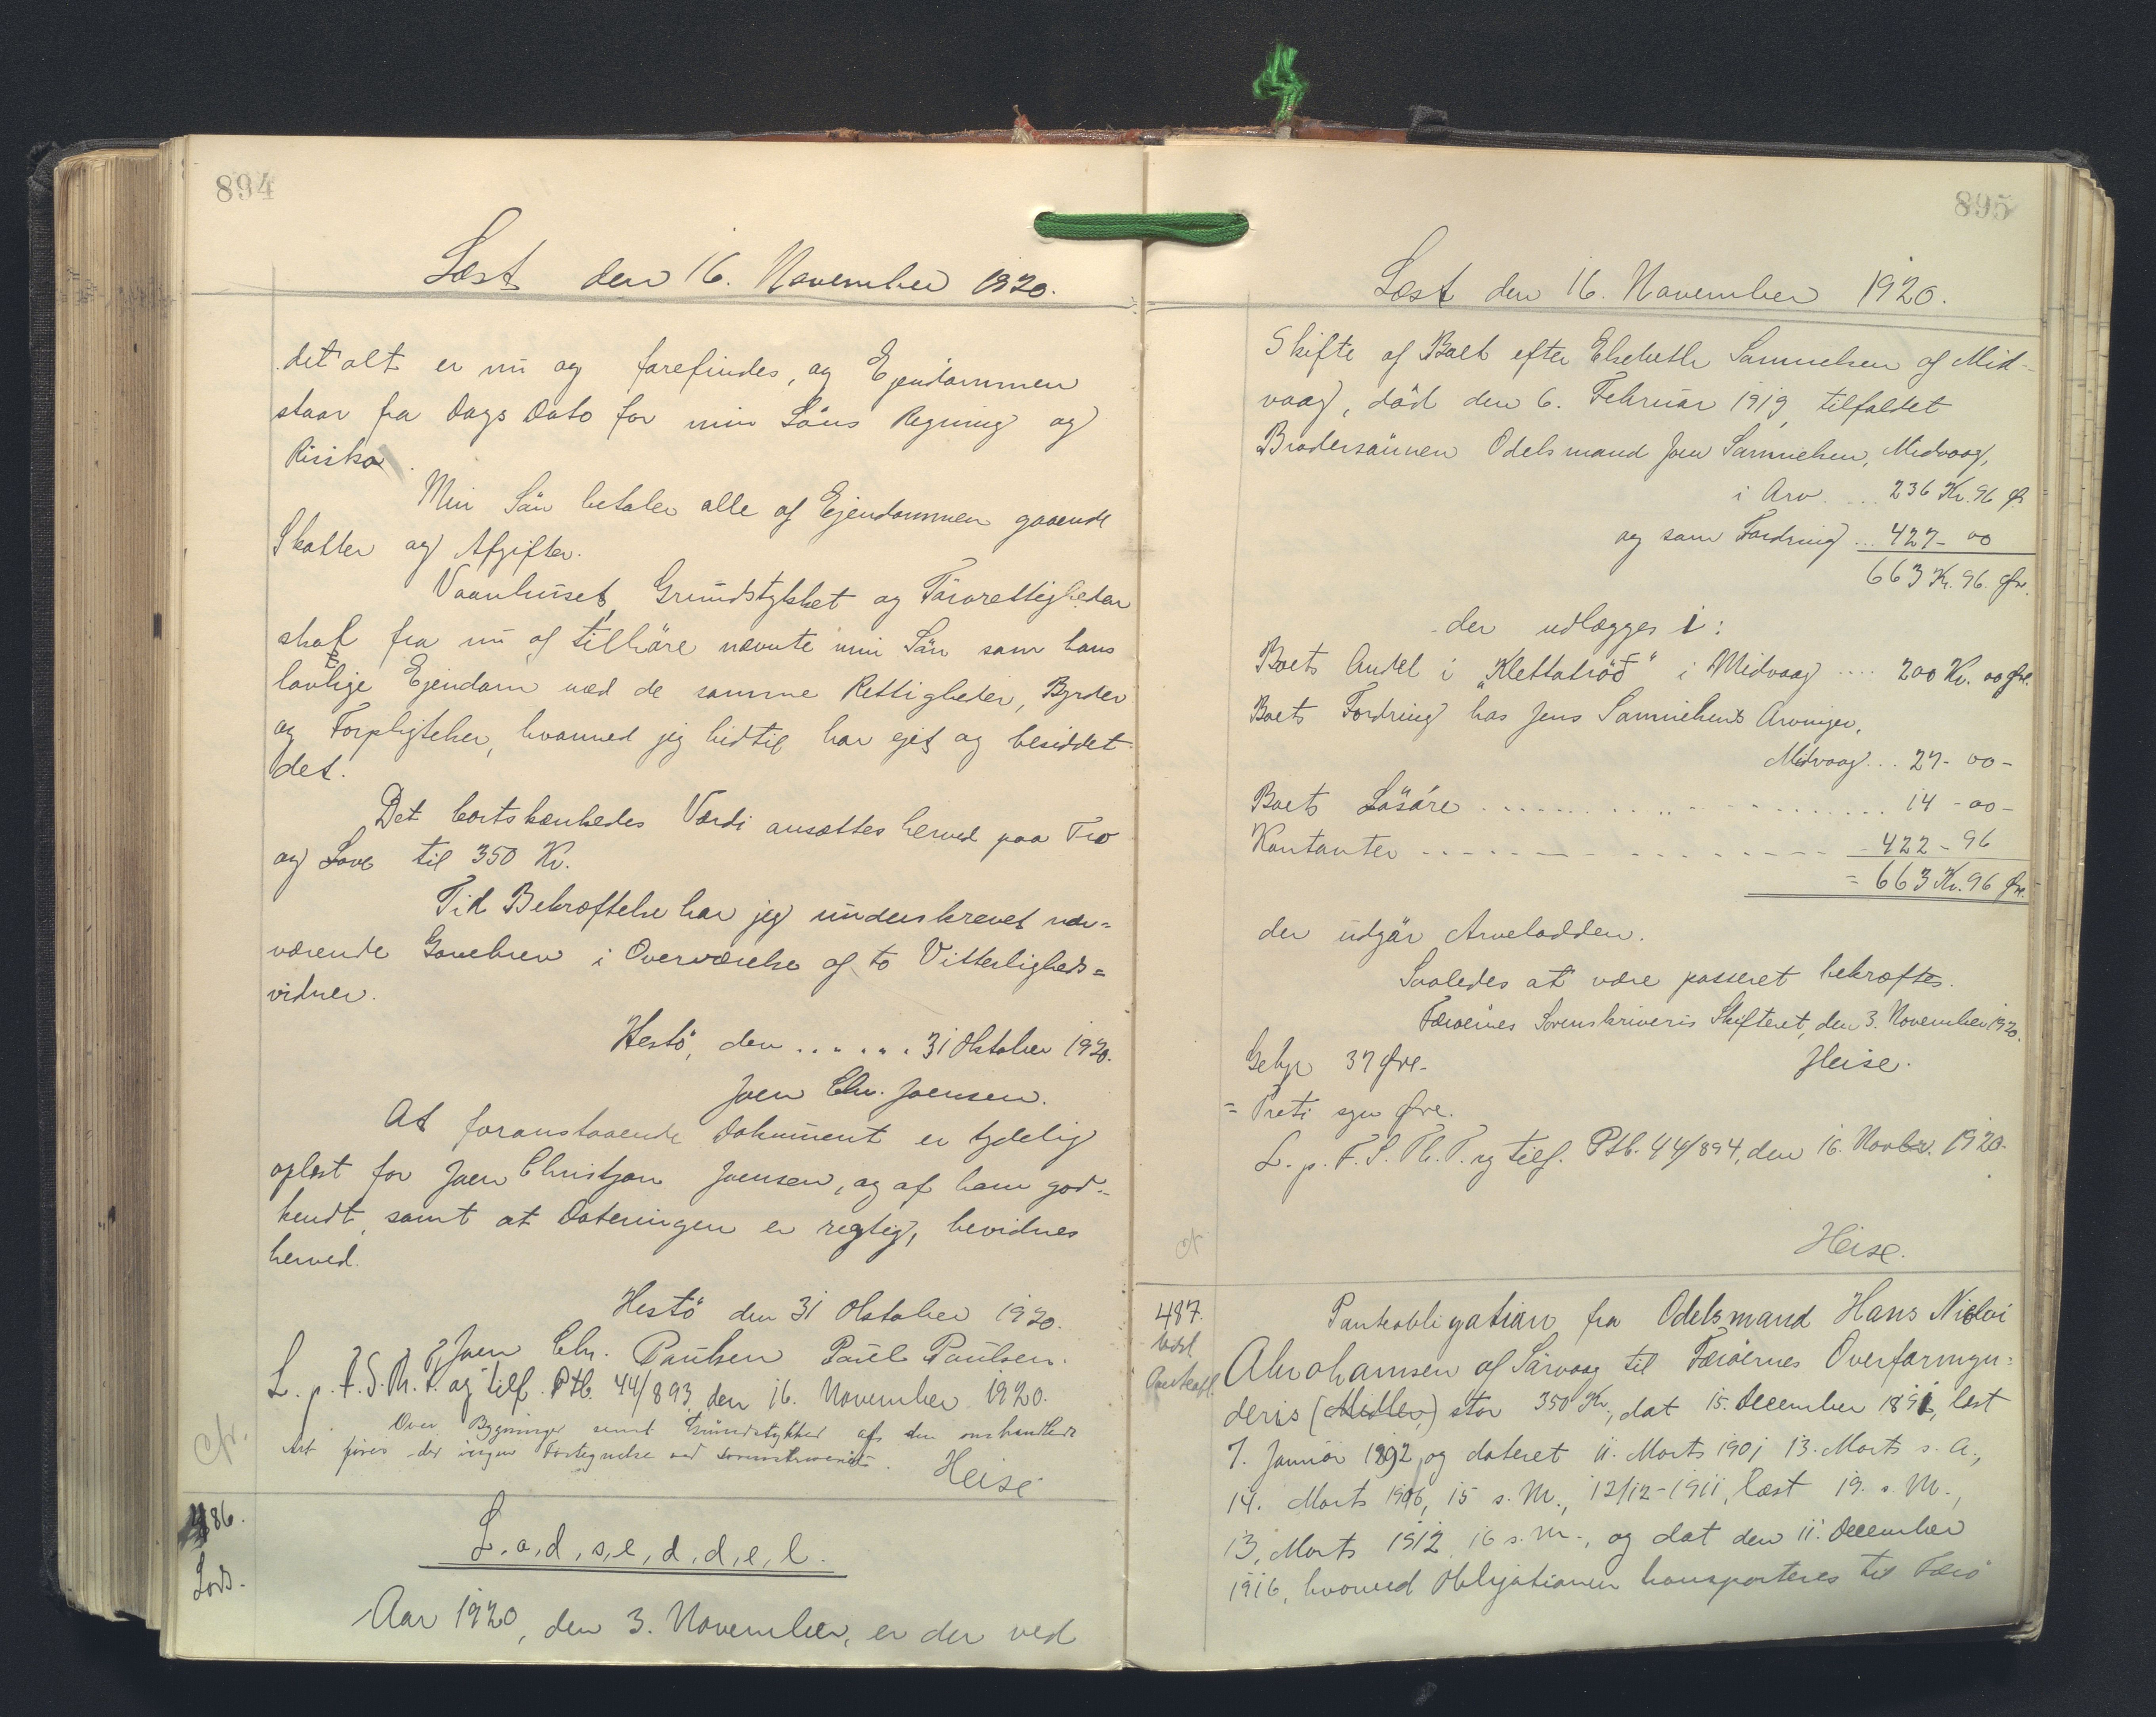 894
Læst den 16. November 1920.
det alt er nu og forefindes, og Ejendommen
staar fra Dags Dato for min Søns Regning og
Risiko.
Min Søn betaler alle af Ejendommen gaaende
Skatter og Afgifter.
Vaanhuset, Grundstykket og Tørvrettigheden
skal fra nu af tilhøre nævnte min Søn som hans
lovlige Ejendom med de samme Rettigheder, Byrder
og Forpligtelser, hvormed jeg hidtil har ejet og besiddet
det.
Det bortskænkedes Værdi ansættes herved paa Tro
og Love til 350 Kr.
Til Bekræftelse har jeg underskrevet nær=
værende Gavebrev i Overværelse af to Vitterligheds=
vidner.
Hestö, den . . . . . . 31 Oktober 1920.
Joen Chr. Joensen.
At foranstaaende Dokument er tydelig
oplæst for Joen Christjan Joensen, og af ham god=
kendt, samt at Dateringen er regtig, bevidnes
herved.
Hestö den 31 Oktober 1920.
Joen Chr. Paulsen Paul Paulsen.
L. p. F. S. Th. P. og tilf. Ptb. 44/893, den 16. November 1920.
Over Bygninger samt Grundstykker af den omhandlede
Art føres der ingen Fortegnelse ved Sorenskriveriet.
Cfr.
Heise
486.
Lods.
L, o, d, s, e, d, d, e, l.
Aar 1920, den 3. November, er der ved
895
Læst den 16. November 1920.
Skifte af Boet efter Elsebeth Samuelsen af Mid-
vaag, död den 6. Februar 1919, tilfaldet
Brodersönnen Odelsmand Joen Samuelsen, Midvaag,
i Arv . . . 236 Kr. 96 Ør
og som Fordring ... 427 - 00
663 Kr. 96 Øre.
der udlægges i:
Boets Andel i "Klettatröð" i Midvaag .... 200 Kr. 00 Øre.
Boets Fordring hos Jens Samuelsens Arvinger,
Midvaag ... 27 - 00 -
Boets Lösöre . . . . . . . . . . . . 14 - 00 -
Kontanter - - - - - - - - - - - - 422 - 96
= 663 Kr. 96 Øre.
der udgör Arvelodden.
Saaledes at være passeret bekræftes.
Færøernes Sorenskriveris Skifteret, den 3. November 1920.
Gebyr 37 Øre. Heise.
= Treti syv Øre.
L. p. F. S. Th. P. og tilf. Ptb. 44/894, den 16. Novbr. 1920.
cfr
Heise.
487.
Panteobligation fra Odelsmand Hans Nicolai
Abrahamsen af Sørvaag til Færøernes Overformyn=
deris (Midler) stor 350 Kr., dat 15. December 1891, læst
7. Januar 1892, og dateret 11. Marts 1901 13. Marts s. A.,
14. Marts 1906, 15 s. M., 12/12-1911, læst 19. s. M.,
13. Marts 1912, 16 s. M., og dat den 11. December
1916, hvorved Obligationen transporteres til Færø